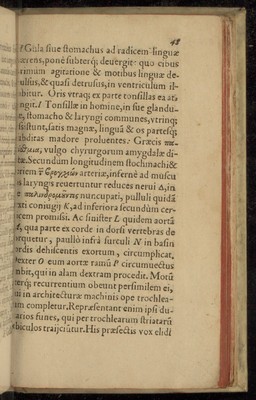 48
P Gula siue stomachus ad radicem linguæ
hærens, ponè subterq; deuergit: quo cibus
primum agitatione & motibus linguæ de-
pulsus, & quasi detrusus, in ventriculum il-
labitur. Oris vtraq; ex parte tonsillas ea at-
tingit. Tonsillæ in homine, in sue glandu-
stomacho & laryngi communes, vtrinq;
sistunt, satis magnæ, linguā & os partesq;
abditas madore proluentes. Græcis
vulgo chyrurgorum amygdalæ di-
ctæ. Secundum longitudinem stochmachi &
arteriæ, infernè ad muscu
laryngis reuertuntur reduces nerui Δ, in
nuncupati, pulluli quidā
sexti coniugij K, ad inferiora secundùm cer-
uicem promissi. Ac sinister L quidem aortā
qua parte ex corde in dorsi vertebras de
torquetur, paullò infrá surculi N in basin
cordis dehiscentis exortum, circumplicat.
Dexter O eum aortæ ramū P circumuectus
ambit, qui in alam dextram procedit. Motū
recurrentium obeunt persimilem ei,
qui in architecturæ machinis ope trochlea-
rum completur. Repræsentant enim ipsi du-
ctarios funes, qui per trochlearum striatarū
orbiculos traijciūtur. His præsectis vox elidi